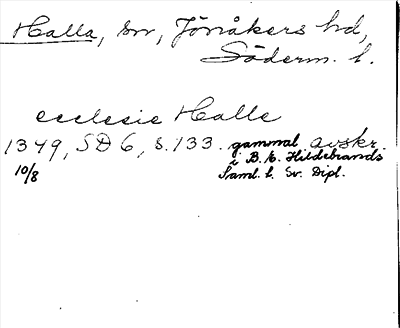 Halla, sn, Jönåkers hd,
Söderm. l.
ecclesie Halle
1349, SD 6, s. 133. gammal avskr.
i B. E. Hildebrands
10/8 Saml. t. Sv. Dipl.